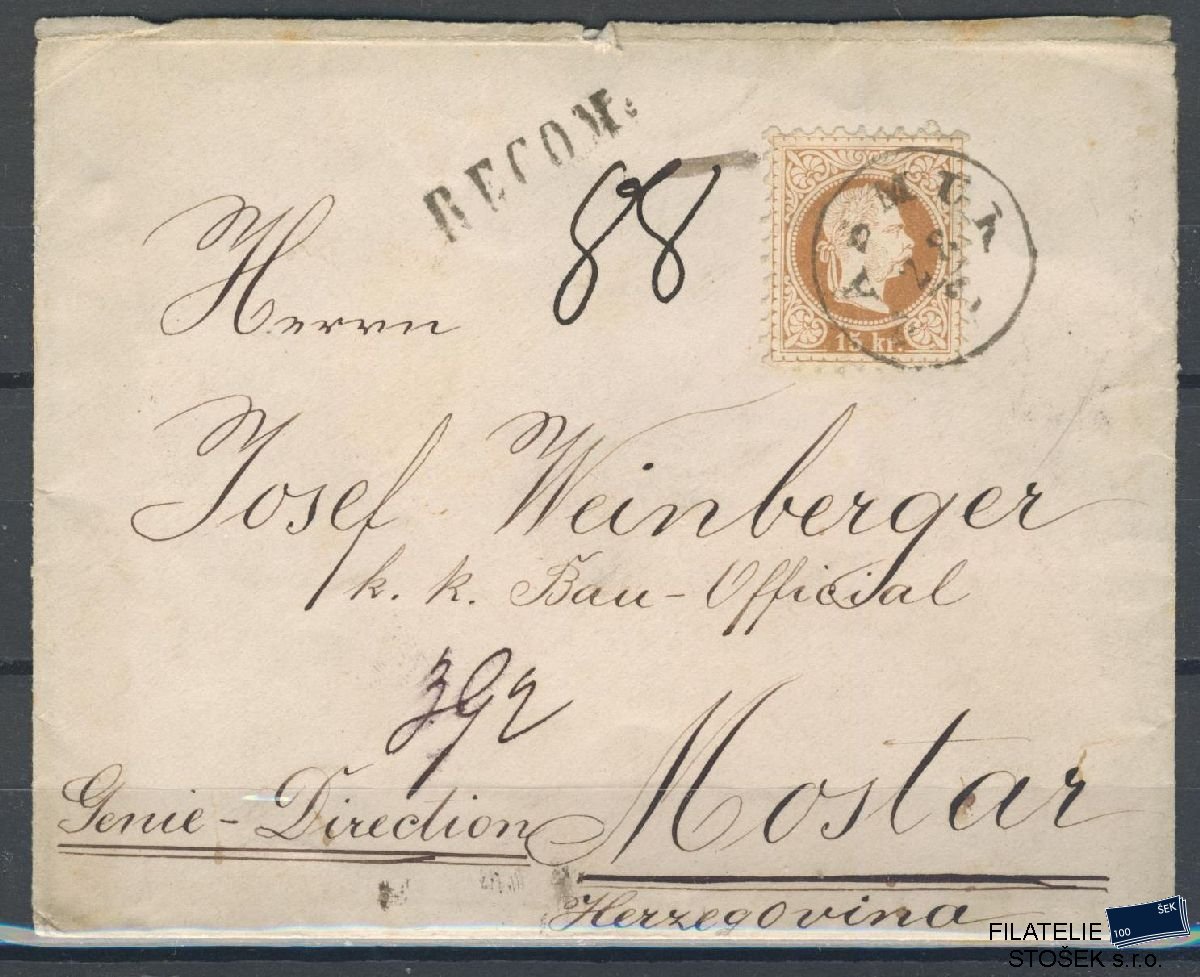 RECOM.
88
15 kr.
Herrn
Josef Weinberger
k. k. Bau-Official
392
Genie-Direction Mostar
Herzegovina
FILATELIE
STOŠEK s.r.o.
100 ŠEK